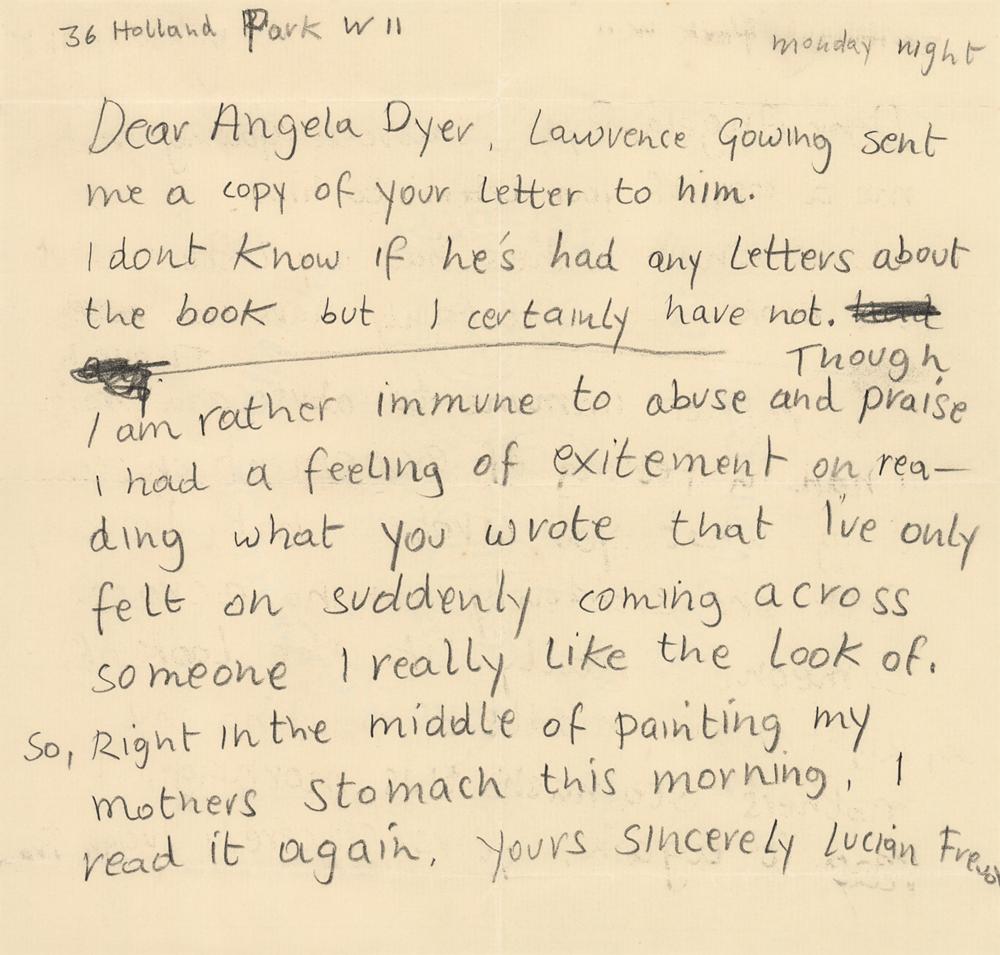 36 Holland Park W 11
monday night
Dear Angela Dyer, Lawrence Gowing sent
me a copy of your letter to him.
I dont know if he's had any letters about
the book but I certainly have not.
Though
I am rather immune to abuse and praise
I had a feeling of exitement on rea-
ding what you wrote that I've only
felt on suddenly coming across
someone I really like the look of.
So, Right in the middle of painting my
mothers stomach this morning, I
read it again, yours sincerely Lucian Freud